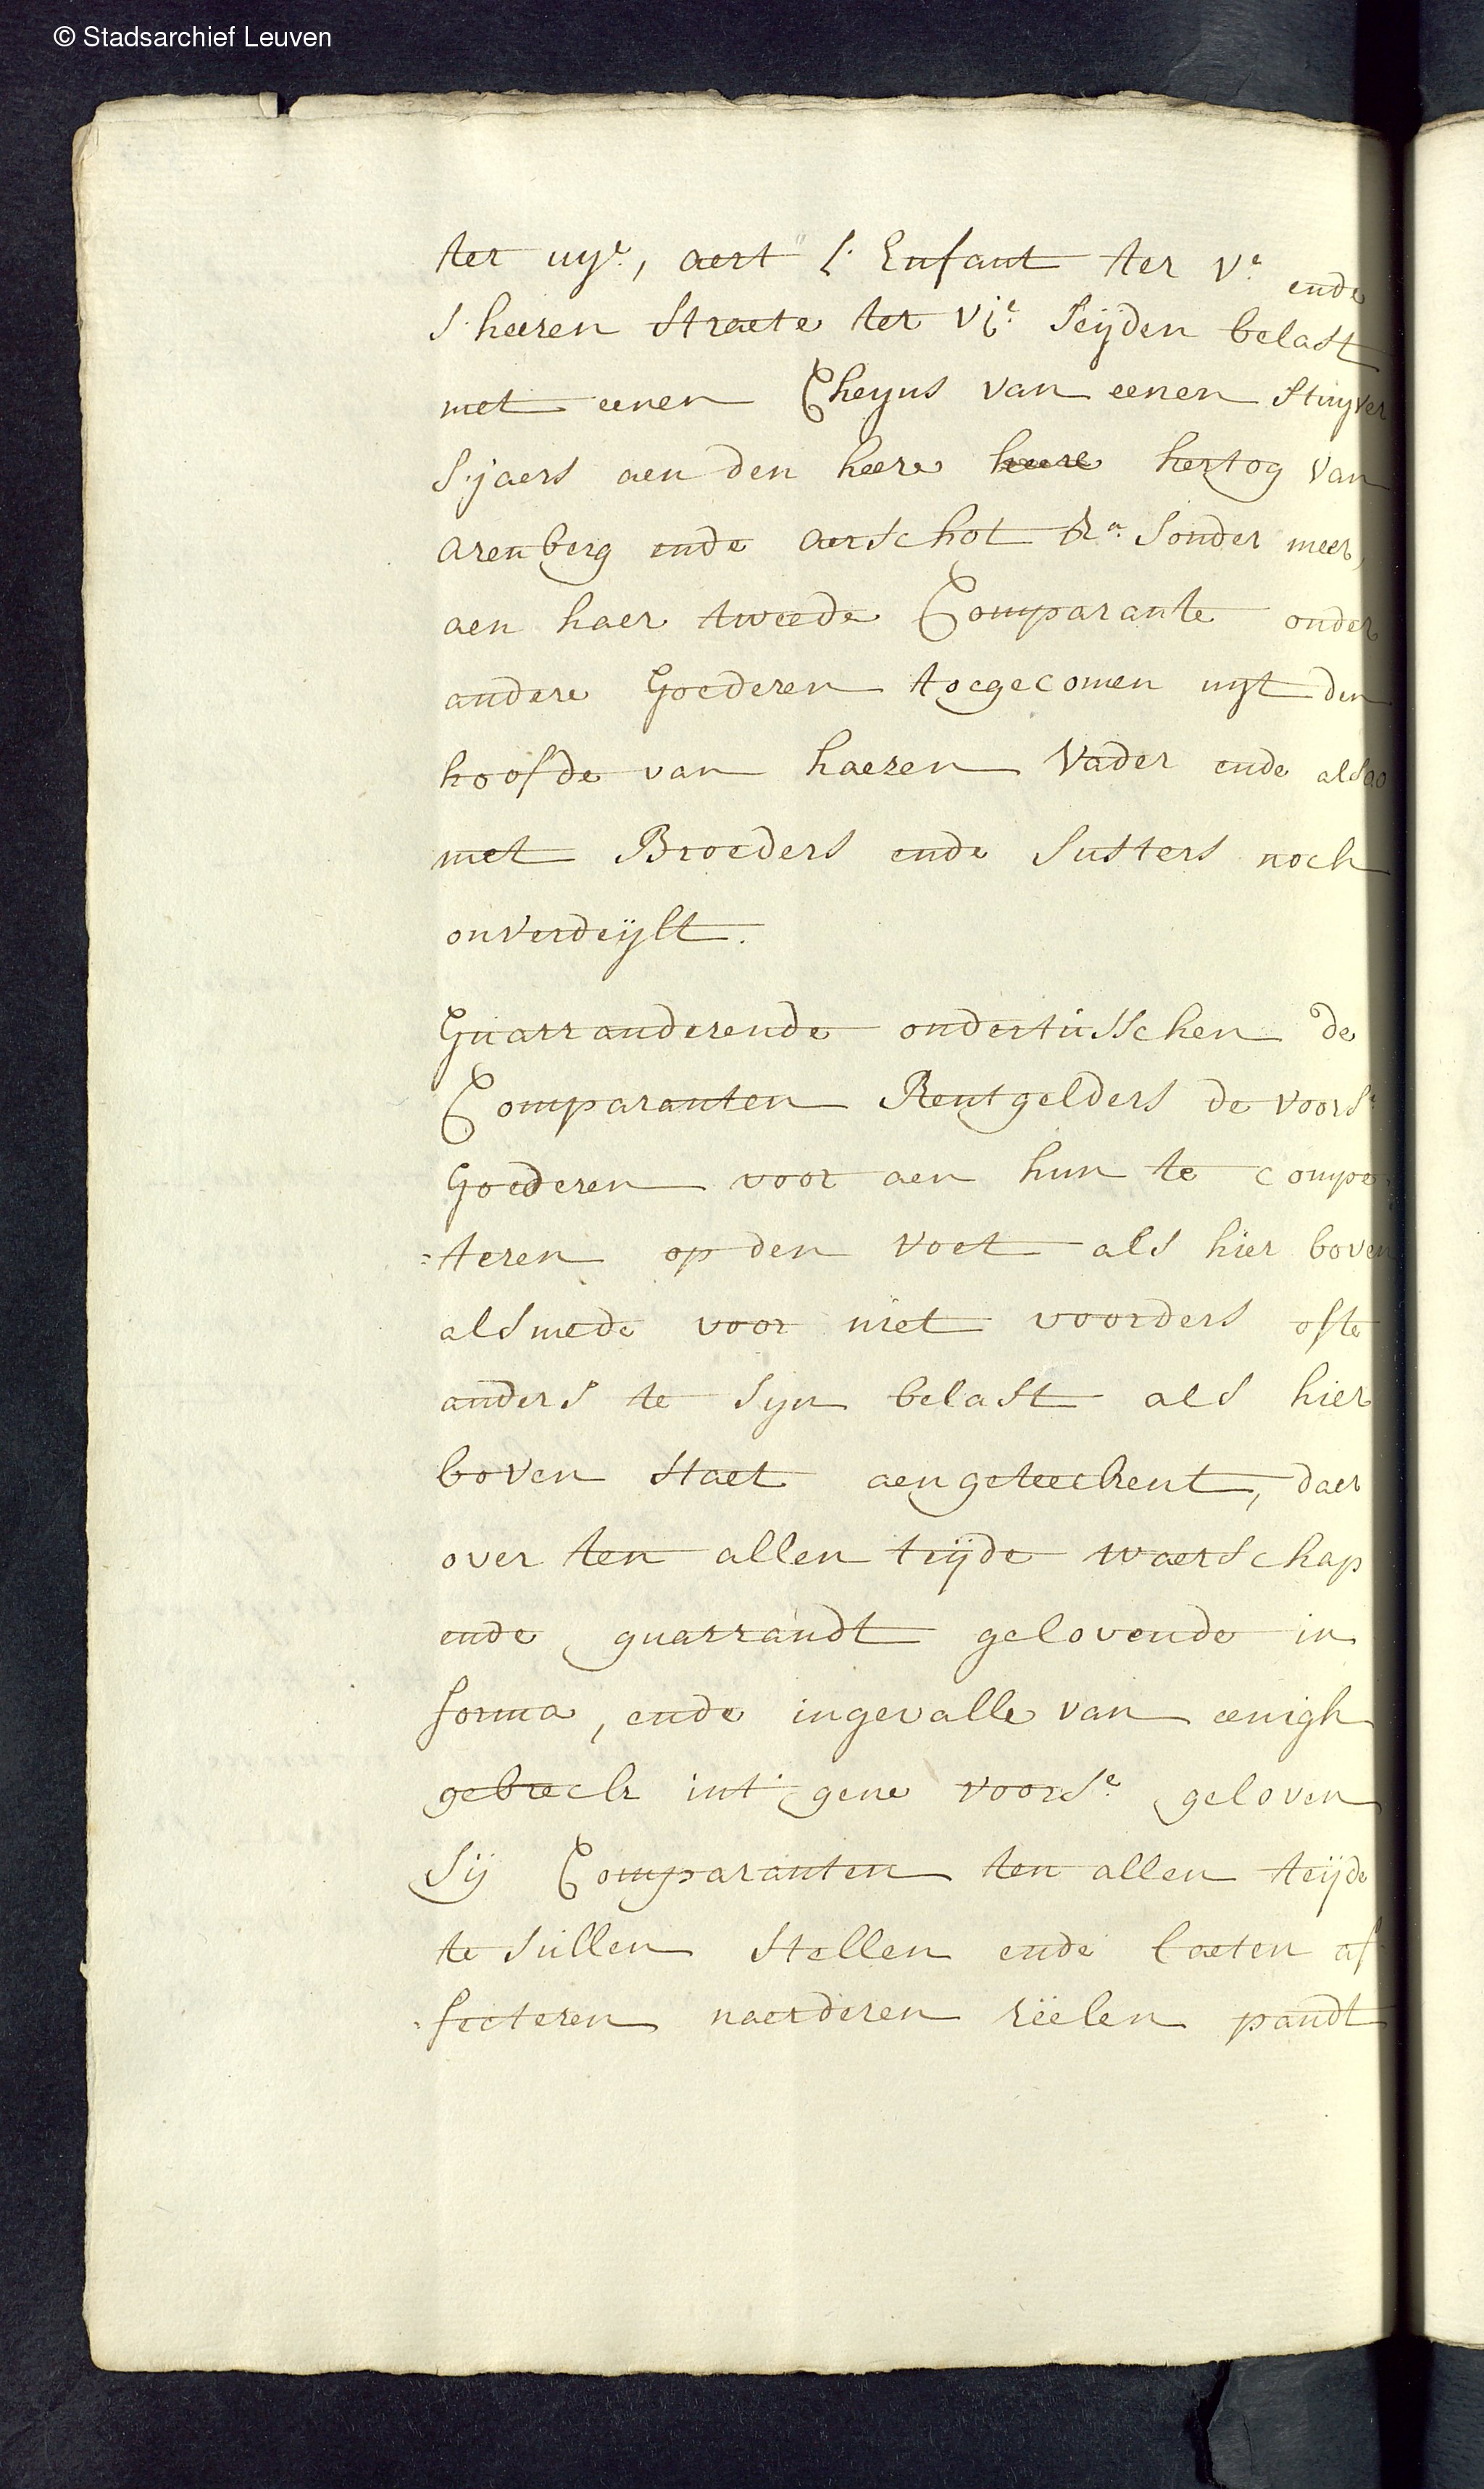 © Stadsarchief Leuven
ter iiije, aert l'Enfant ter ve ende
S'heeren Straete ter vje Seijden belast
met eenen Cheyns van eenen Stuyver
S'jaers aen den heere heere hertog van
arenberg ende aerschot &a Sonder meer,
aen haer tweede Comparante onder
andere Goederen toegecomen uyt den
hoofde van haeren Vader ende alsoo
met Broeders ende Susters noch
onverdeijlt.
Guarranderende ondertusschen de
Comparanten Rentgelders de voorse
Goederen voor aen hun te compe
=teren op den voet als hier boven
alsmede voor niet voorders ofte
anders te syn belast als hier
boven staet aengeteeckent, daer
over ten allen teijde waerschap
ende guarrandt gelovende in
forma, ende ingevalle van eenigh
gebreck int' gene voorse geloven
Sij Comparanten ten allen teijde
te sullen stellen ende laeten af
fecteren naerderen reëlen pandt